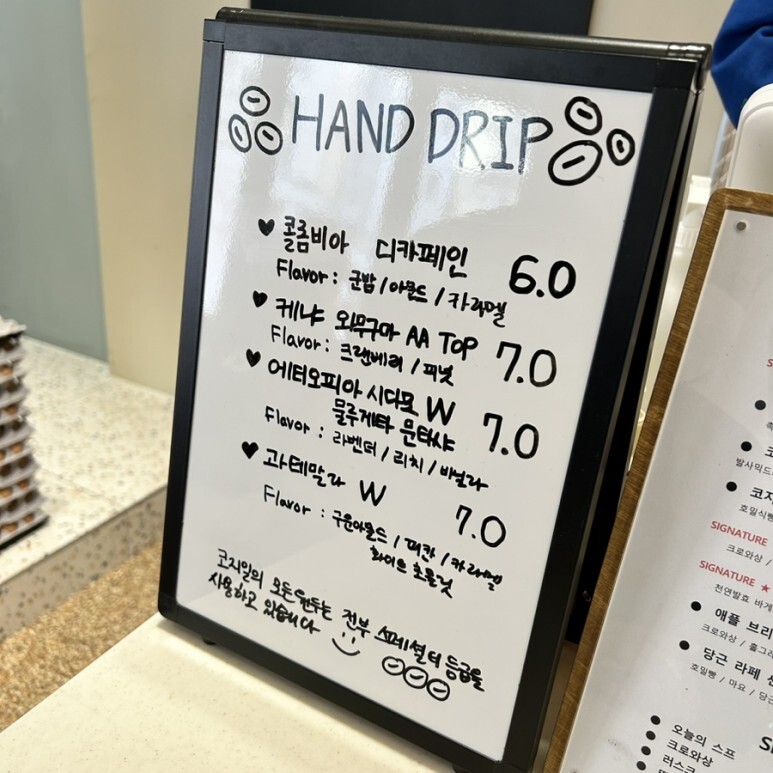 HAND DRIP
♥ 콜롬비아 디카페인 6.0
Flavor : 군밤 / 아몬드 / 카라멜
♥ 케냐 외무구마 AA TOP 7.0
Flavor : 크랜베리 / 피넛
♥ 에티오피아 시다모 W 7.0
물루게타 문타샤
Flavor : 라벤더 / 리치 / 바닐라
♥ 과테말라 W 7.0
Flavor : 구운아몬드 / 피칸 / 카라멜
화이트 초콜릿
코지일의 모든원두는 전부 스페셜티 등급을
사용하고 있습니다
발사믹드
호밀식빵
SIGNATURE
크로와상 /
SIGNATURE ★
천연발효 바게
● 애플 브리
크로와상 / 홀그레
● 당근 라페 샌
호밀빵 / 마요 / 당근
● 오늘의 스프
● 크로와상
● 러스크